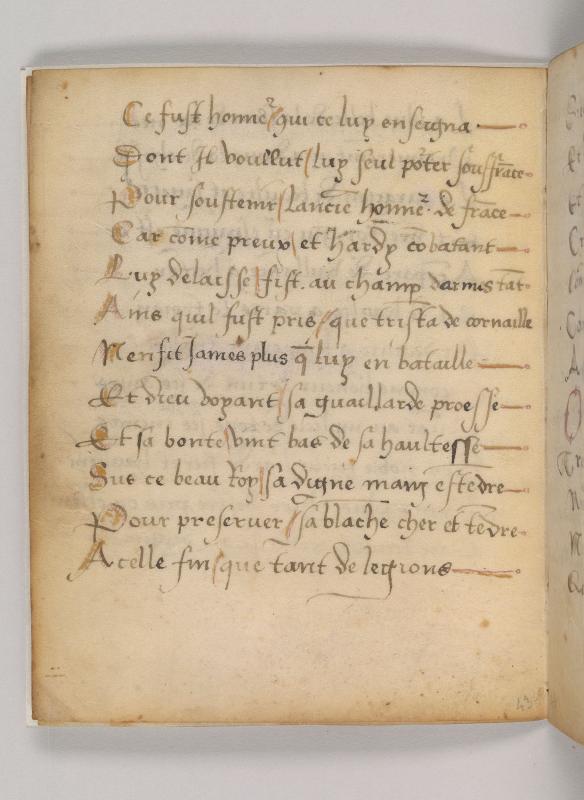 Ce fust honnẽ²/ qui ce luy enseigna
Dont Il voullut/ luy seul põter souffrãce
Pour soustenir/ lanciẽ honnẽ² de frãce
Car cõme preux/ et hardy cõbatant
Luy delaisse/ fist au champ darmes tãt
Ains quil fust pris/ que tristã de cornaille
Nen fit James plus q̃ luy en bataille
Et dieu voyant/ sa guaillarde proesse
Et sa bonte/ vint bas de sa haultesse
Sus ce beau Roy/ sa digne main estẽdre
Pour preserver/ sa blãche chér et tẽdre
A celle fin/ que tant de legions
43